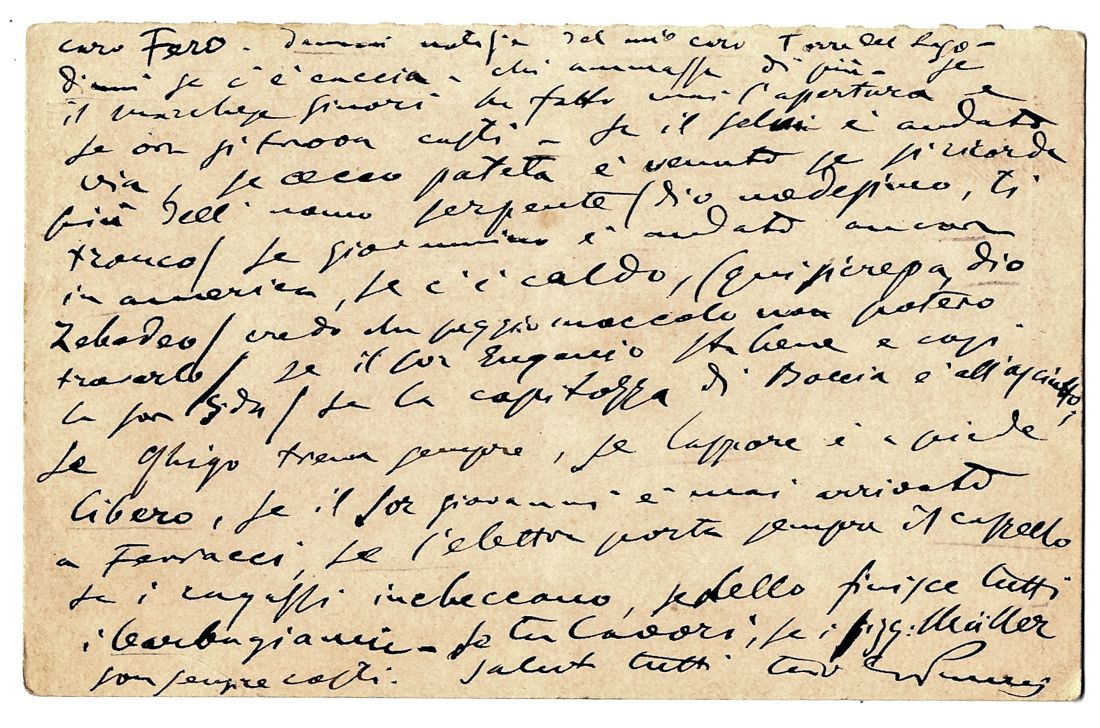 caro Fero - Dammi notizie del mio caro Torre del Lago -
dimmi se c'è caccia - chi ammazza di più - se
il marchese Ginori ha fatto mai l'apertura e
se ora si trova costì - se il è andato
via, se cecco pateta è venuto se si ricorda
più dell'uomo serpente (dio medesimo, ti
tronco) se giovannino è andato ancora
in america, se c'è caldo, (qui si crepa, dio
Zebedeo) credo che peggio moccolo non potevo
trovarlo) se il sor Eugenio sta bene e così
la sora Ida) se la capitozza di Boccia è all'asciutto,
se Ghigo trema sempre, se Lappore è a piede
libero, se il sor giovanni è mai arrivato
a Ferracci, se l'elettore porta sempre il cappello
se i ragazzi imbeccano, se dello finisce tutti
i barbagianni - se tu lavori, se i sigg: Müller
son sempre costì. Saluta tutti tuo